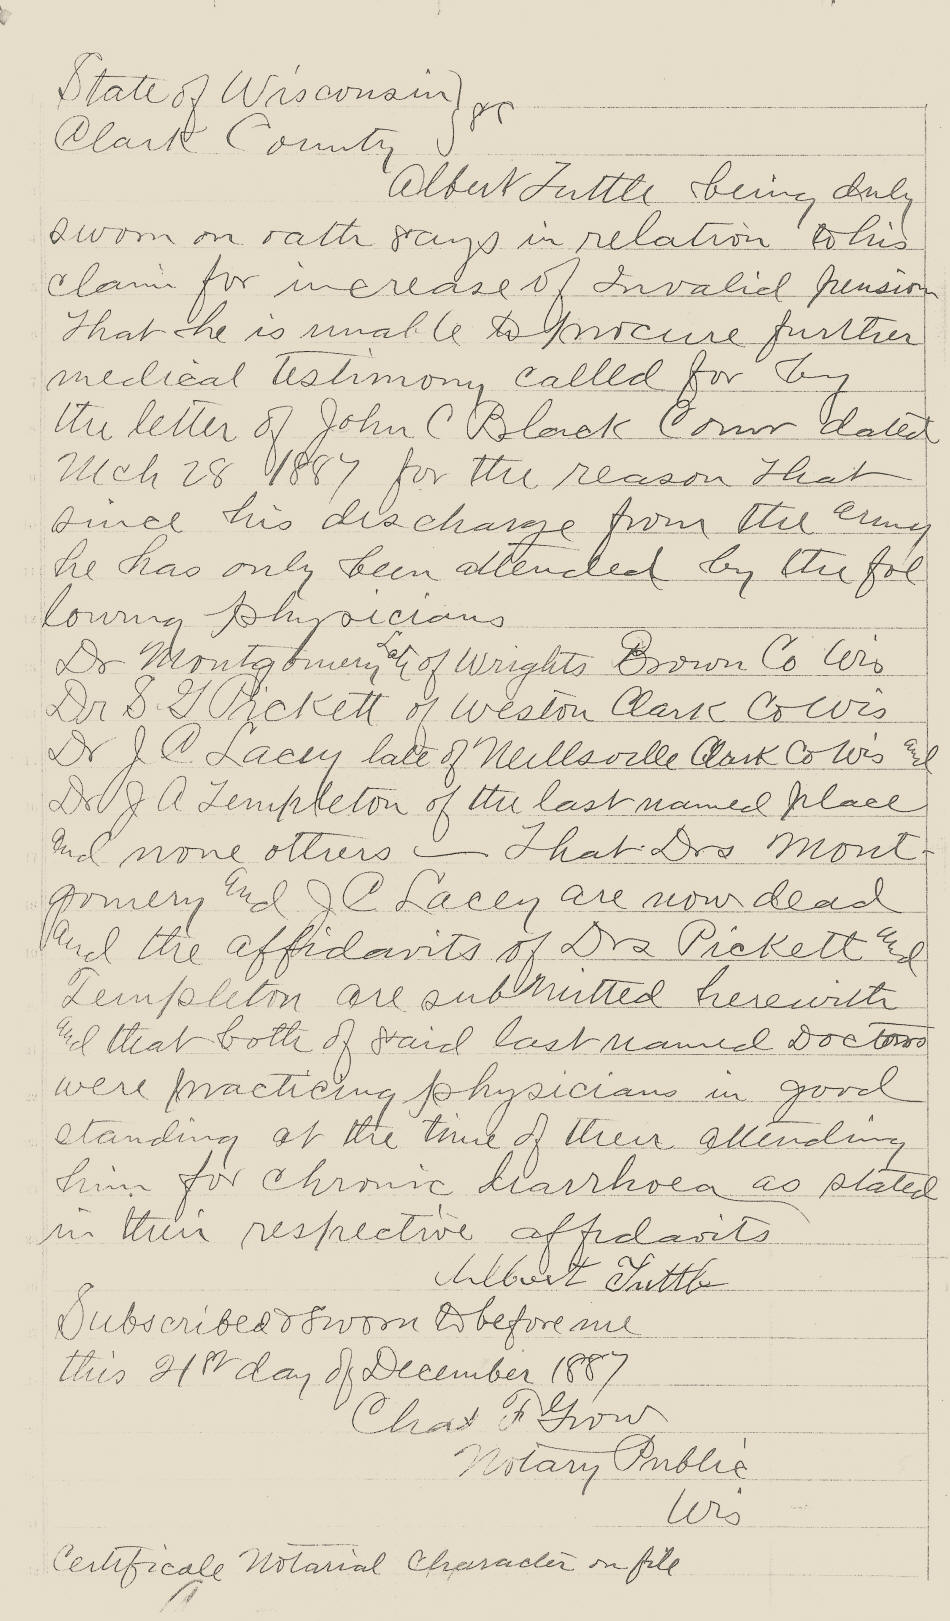 State of Wisconsin } ss
Clark County
Albert Tuttle being duly
sworn on oath says in relation to his
claim for increase of Invalid pension
that he is unable to procure further
medical testimony called for by
the letter of John C Black Comr dated
Mch 28 1887 for the reason that
since his discharge from the army
he has only been attended by the fol
lowing physicians
Dr Montgomery late of Wrights Brown Co Wis
Dr S G Pickett of Weston Clark Co Wis
Dr J C Lacey late of Neillsville Clark Co Wis and
Dr J A Templeton of the last named place
and none others — That Drs Mont-
gomery and J C Lacey are now dead
and the affidavits of Drs Pickett and
Templeton are submitted herewith
and that both of said last named Doctors
were practicing physicians in good
standing at the time of their attending
him for chronic diarrhoea as stated
in their respective affidavits
Albert Tuttle
Subscribed & sworn to before me
this 21st day of December 1887
Chas F Grow
Notary Public
Wis
Certificate Notarial Character on file